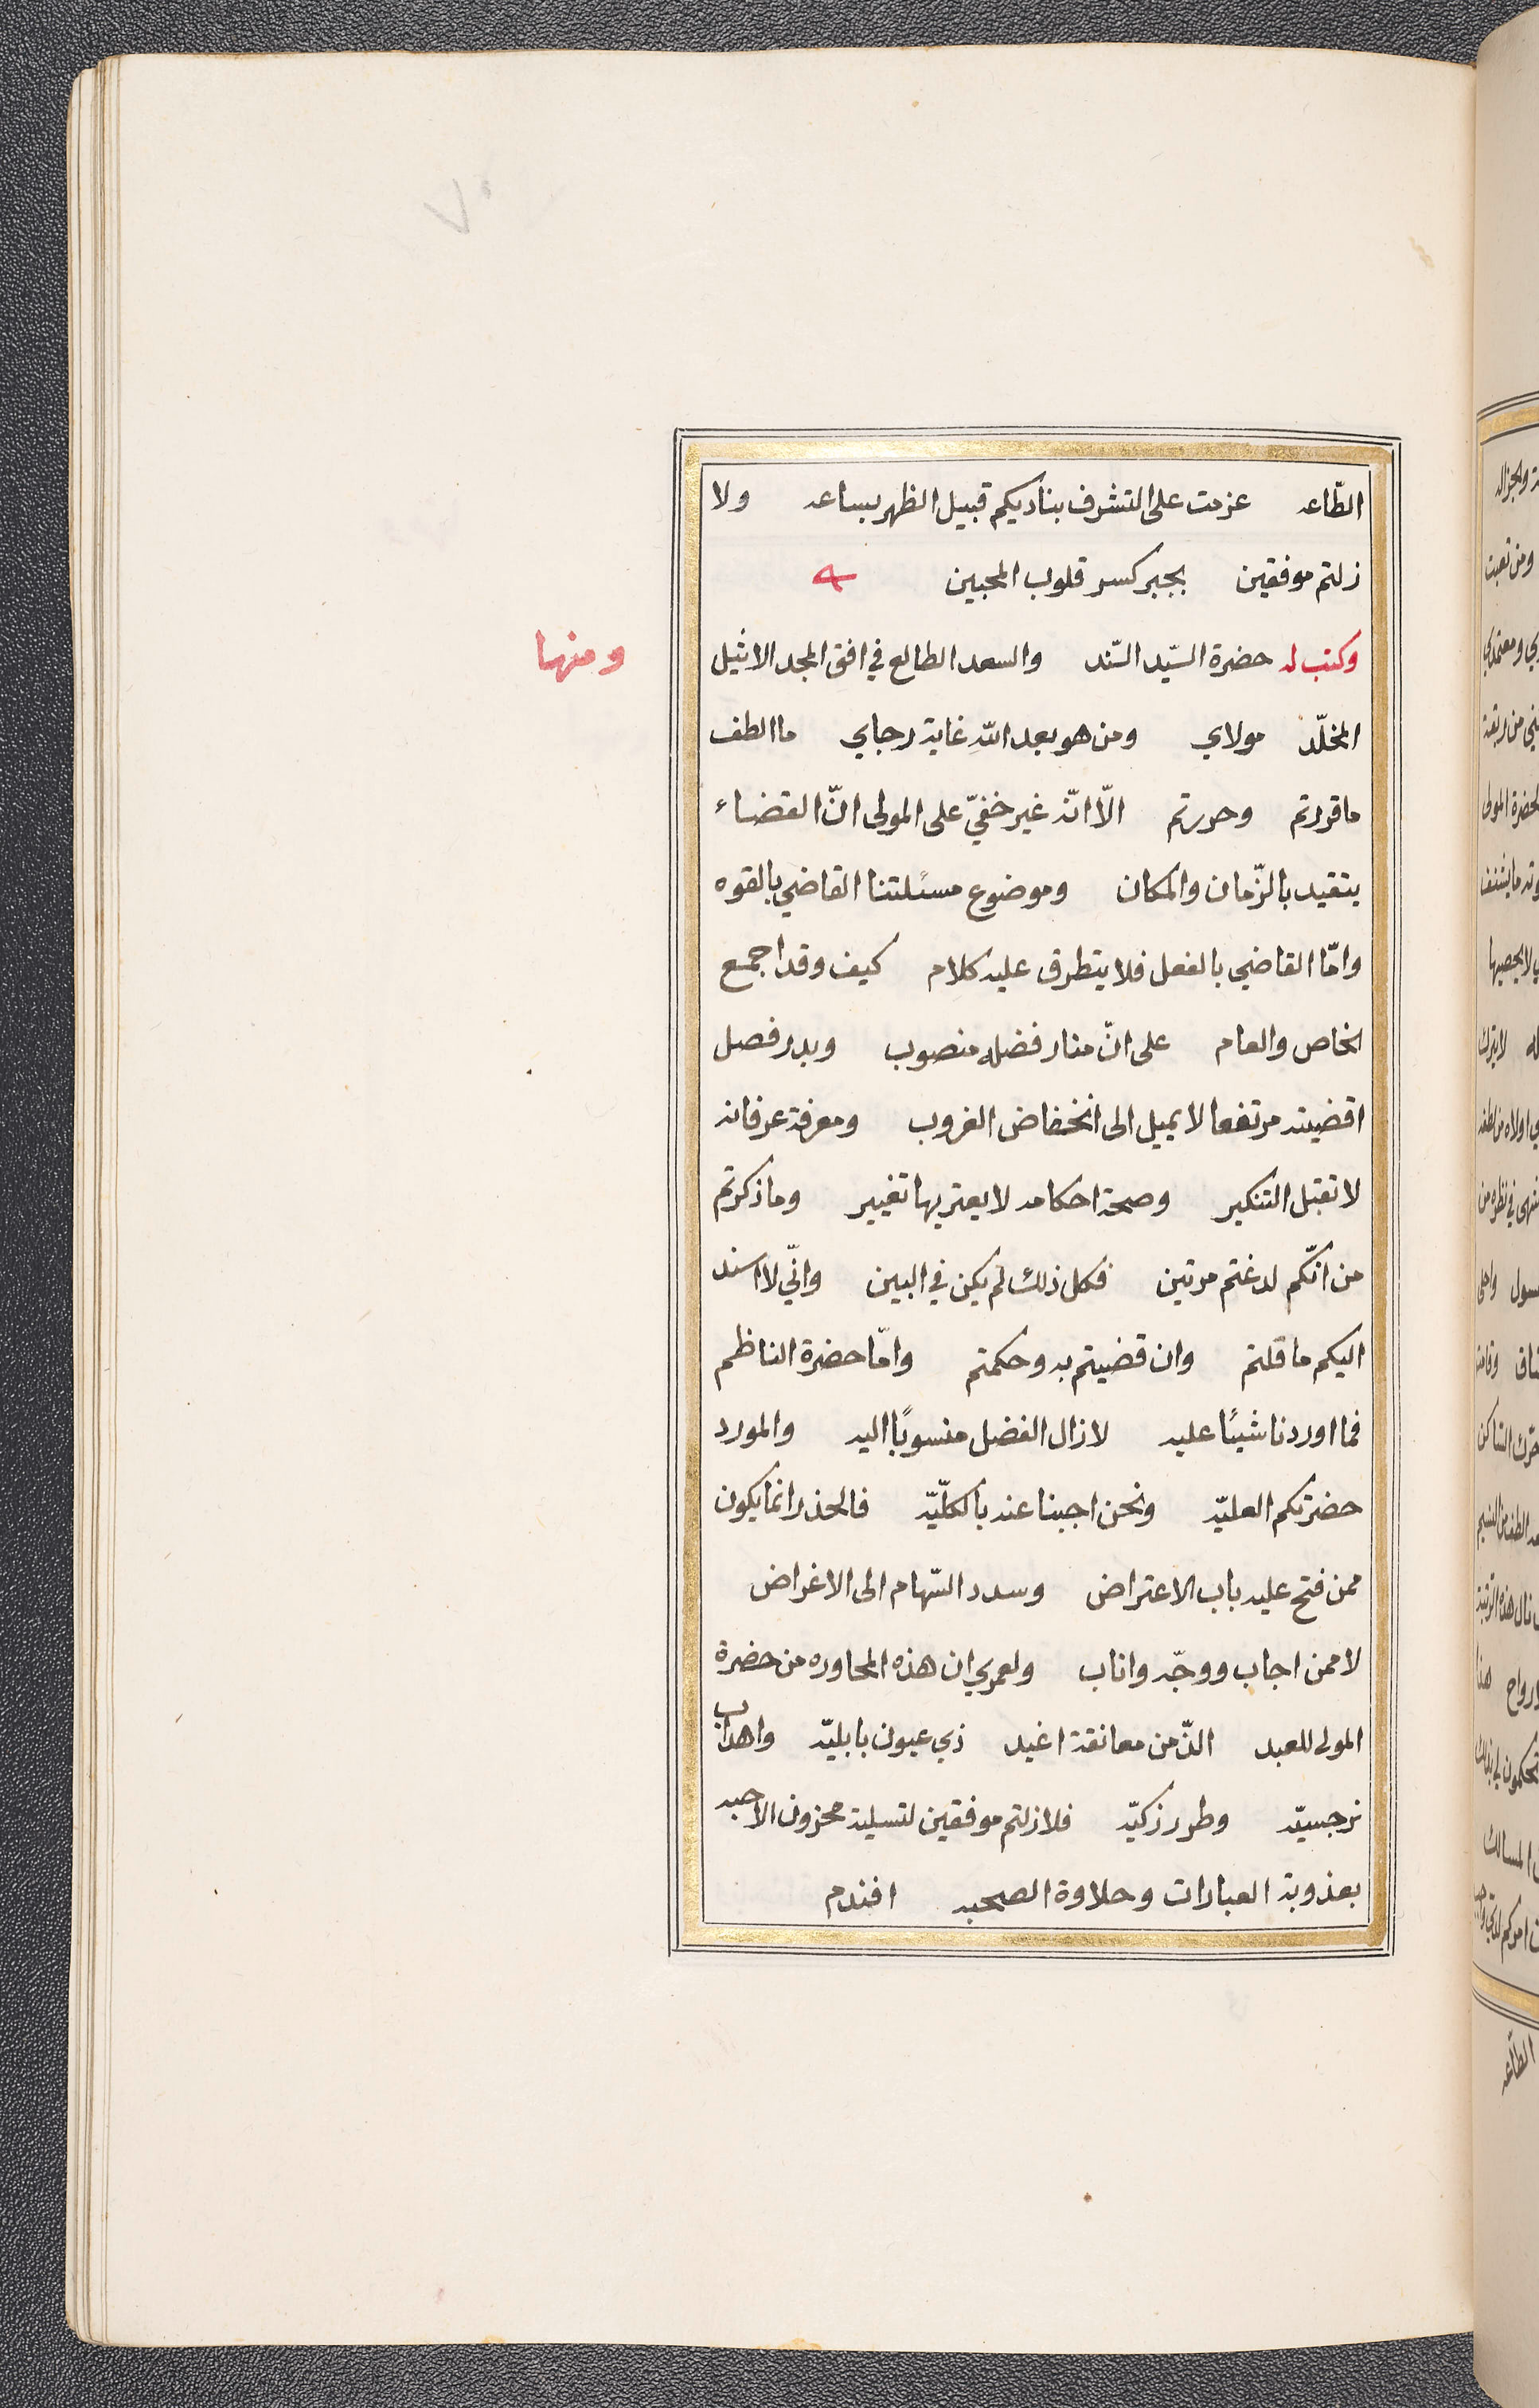 ٧٠
الطّاعه عزمت على التشرف بناديكم قبيل الظهر بساعه ولا
زلتم موفقين بجبر كسر قلوب المحبين
ومنها
وكتب له حضرة السّيد السّند والسعد الطالع في افق المجد الاثيل
المخلّد مولاي ومن هو بعد اللّه غاية رجاي ما الطف
ما قررتم وحررتم الّا انّه غير خفيّ على المولى انّ القضاء
يتقيد بالزّمان والمكان وموضوع مسئلتنا القاضي بالقوه
وامّا القاضي بالفعل فلا يتطرق عليه كلام كيف وقد اجمع
الخاص والعام على انّ منار فضله منصوب وبدر فصل
اقضيته مرتفعا لا يميل الى انخفاض الغروب ومعرفة عرفانه
لا تقبل التنكير وصحة احكامه لا يعتريها تغيير وما ذكرتم
من انّكم لدغتم مرتين فكل ذلك لم يكن في البين وانّي لا اسند
اليكم ما قلتم وان قضيتم به وحكمتم وامّا حضرة الناظم
فما اوردنا شيئًا عليه لا زال الفضل منسوبًا اليه والمورد
حضرتكم العليّه ونحن اجبنا عنه بالكلّيّه فالحذر انما يكون
ممن فتح عليه باب الاعتراض وسدد السّهام الى الاغراض
لا ممن اجاب ووجّه واناب ولعمري ان هذه المحاوره من حضرة
المولى للعبد الذّ من معانقة اغيد ذي عيون بابليّه واهداب
نرجسيّه وطرر زكيّه فلا زلتم موفقين لتسلية محزون الاحبه
بعذوبة العبارات وحلاوة الصحبه افندم